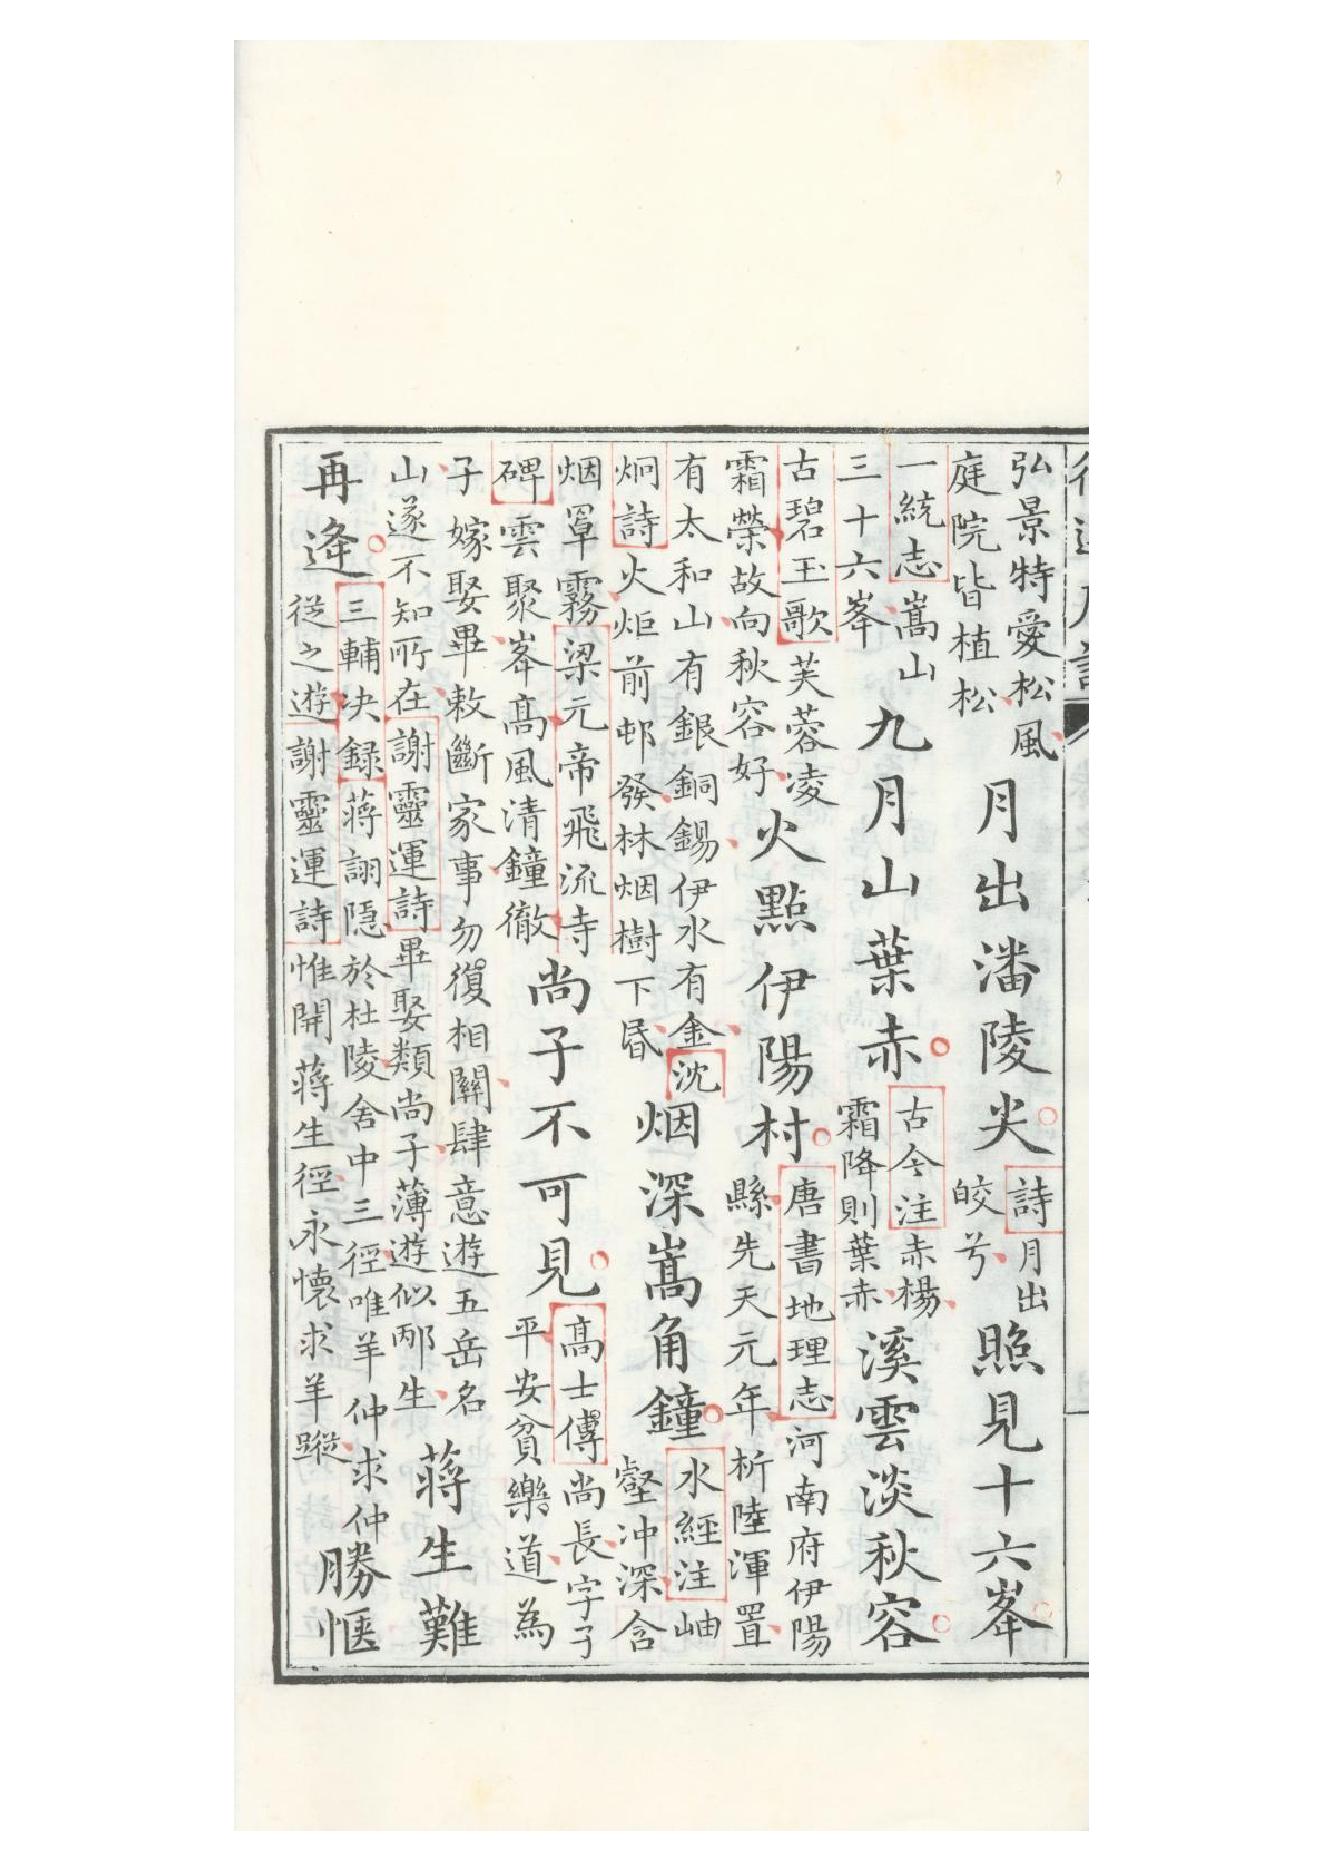 弘景特愛松風庭院皆植松月出潘陵尖詩月出皎兮照見十六峯
一統志嵩山三十六峯九月山葉赤古今注赤楊霜降則葉赤溪雲淡秋容
古碧玉歌芙蓉凌霜榮故向秋容好火點伊陽村唐書地理志河南府伊陽縣先天元年析陸渾置
有太和山有銀銅錫伊水有金沈烱詩火炬前邨發林烟樹下昏烟深嵩角鐘水經注岫壑沖深含
烟罩霧梁元帝飛流寺碑雲聚峯髙風清鐘徹尚子不可見髙士傳尚長字子平安貧樂道為
子嫁娶畢敕斷家事勿復相關肆意遊五岳名山遂不知所在謝靈運詩畢娶類尚子薄遊似邴生蔣生難
再逢三輔决録蔣詡隱於杜陵舍中三徑唯羊仲求仲從之遊謝靈運詩惟開蔣生徑永懷求羊蹤勝愜